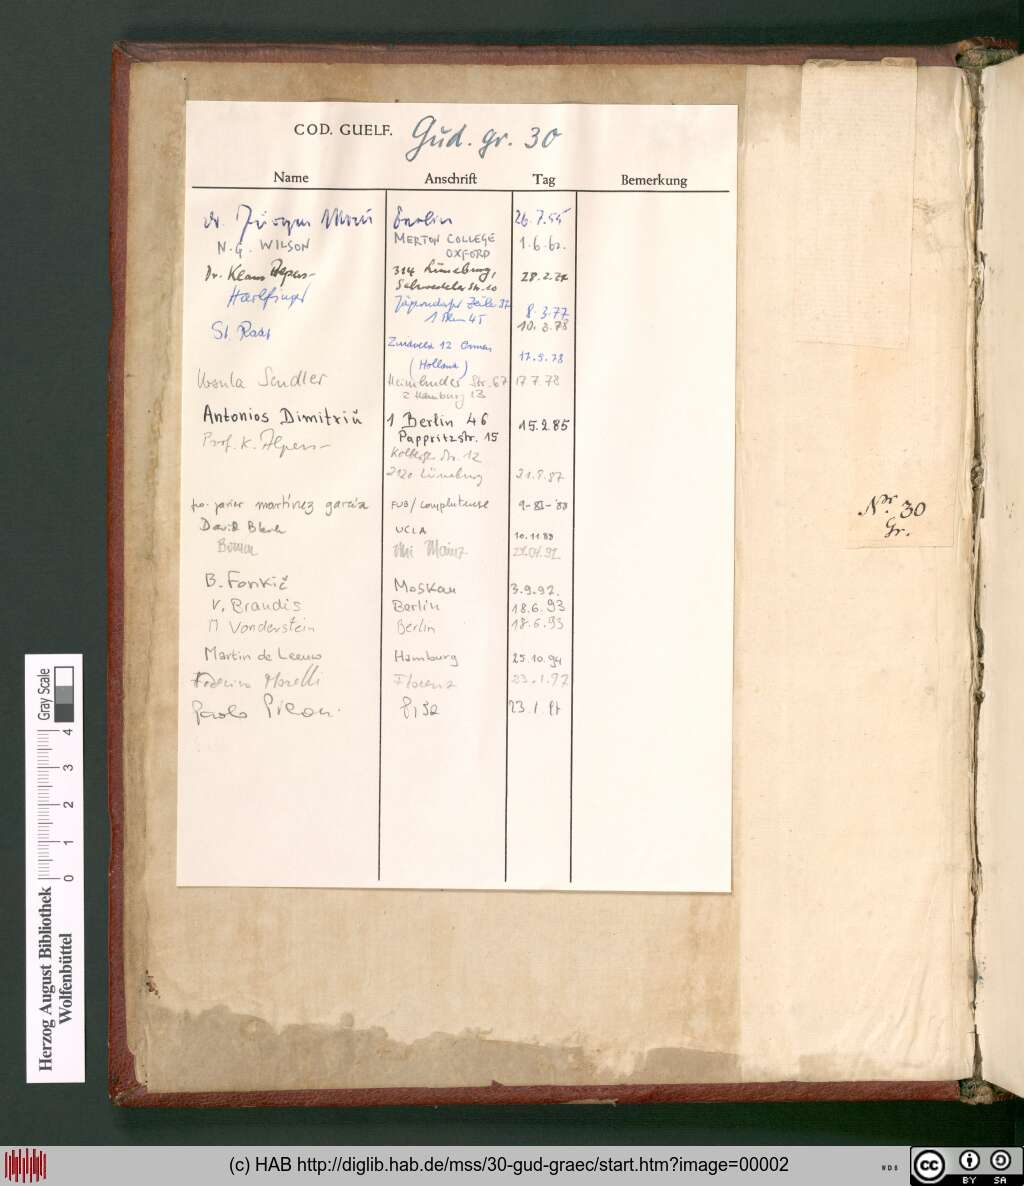 COD. GUELF. Gud. gr. 30
Name Anschrift Tag Bemerkung
Dr. Jürgen Berlin 26.7.55
N.G. WILSON MERTON COLLEGE 1.6.62.
OXFORD
Dr. Klaus Alpers 314 Lüneburg,
Str. 10
Harlfinger Zeile
1 Bln 45 8.3.77
10.3.78
St. Radt 12
(Holland) 17.5.78
Ursula Sendler Str. 67 17.7.78
2 Hamburg 13
Antonios Dimitriu 1 Berlin 46 15.2.85
Pappritzstr. 15
Prof. K. Alpers Str. 12
2120 Lüneburg 21.8.87
javier martínez garcía FUB/Complutense 9-XI-'88
David Blank UCLA 10.11.89
Uni Mainz
B. Fonkič Moskau 3.9.92.
V. Brandis Berlin 18.6.93
M Vonderstein Berlin 18.6.93
Martin de Leeuw Hamburg 25.10.94
Federica Florenz 23.1.97
Paolo Pisa 23.1.97
Nr. 30
Gr.
Herzog August Bibliothek
Wolfenbüttel
0 1 2 3 4
Gray Scale
(c) HAB http://diglib.hab.de/mss/30-gud-graec/start.htm?image=00002
WDB
cc BY SA